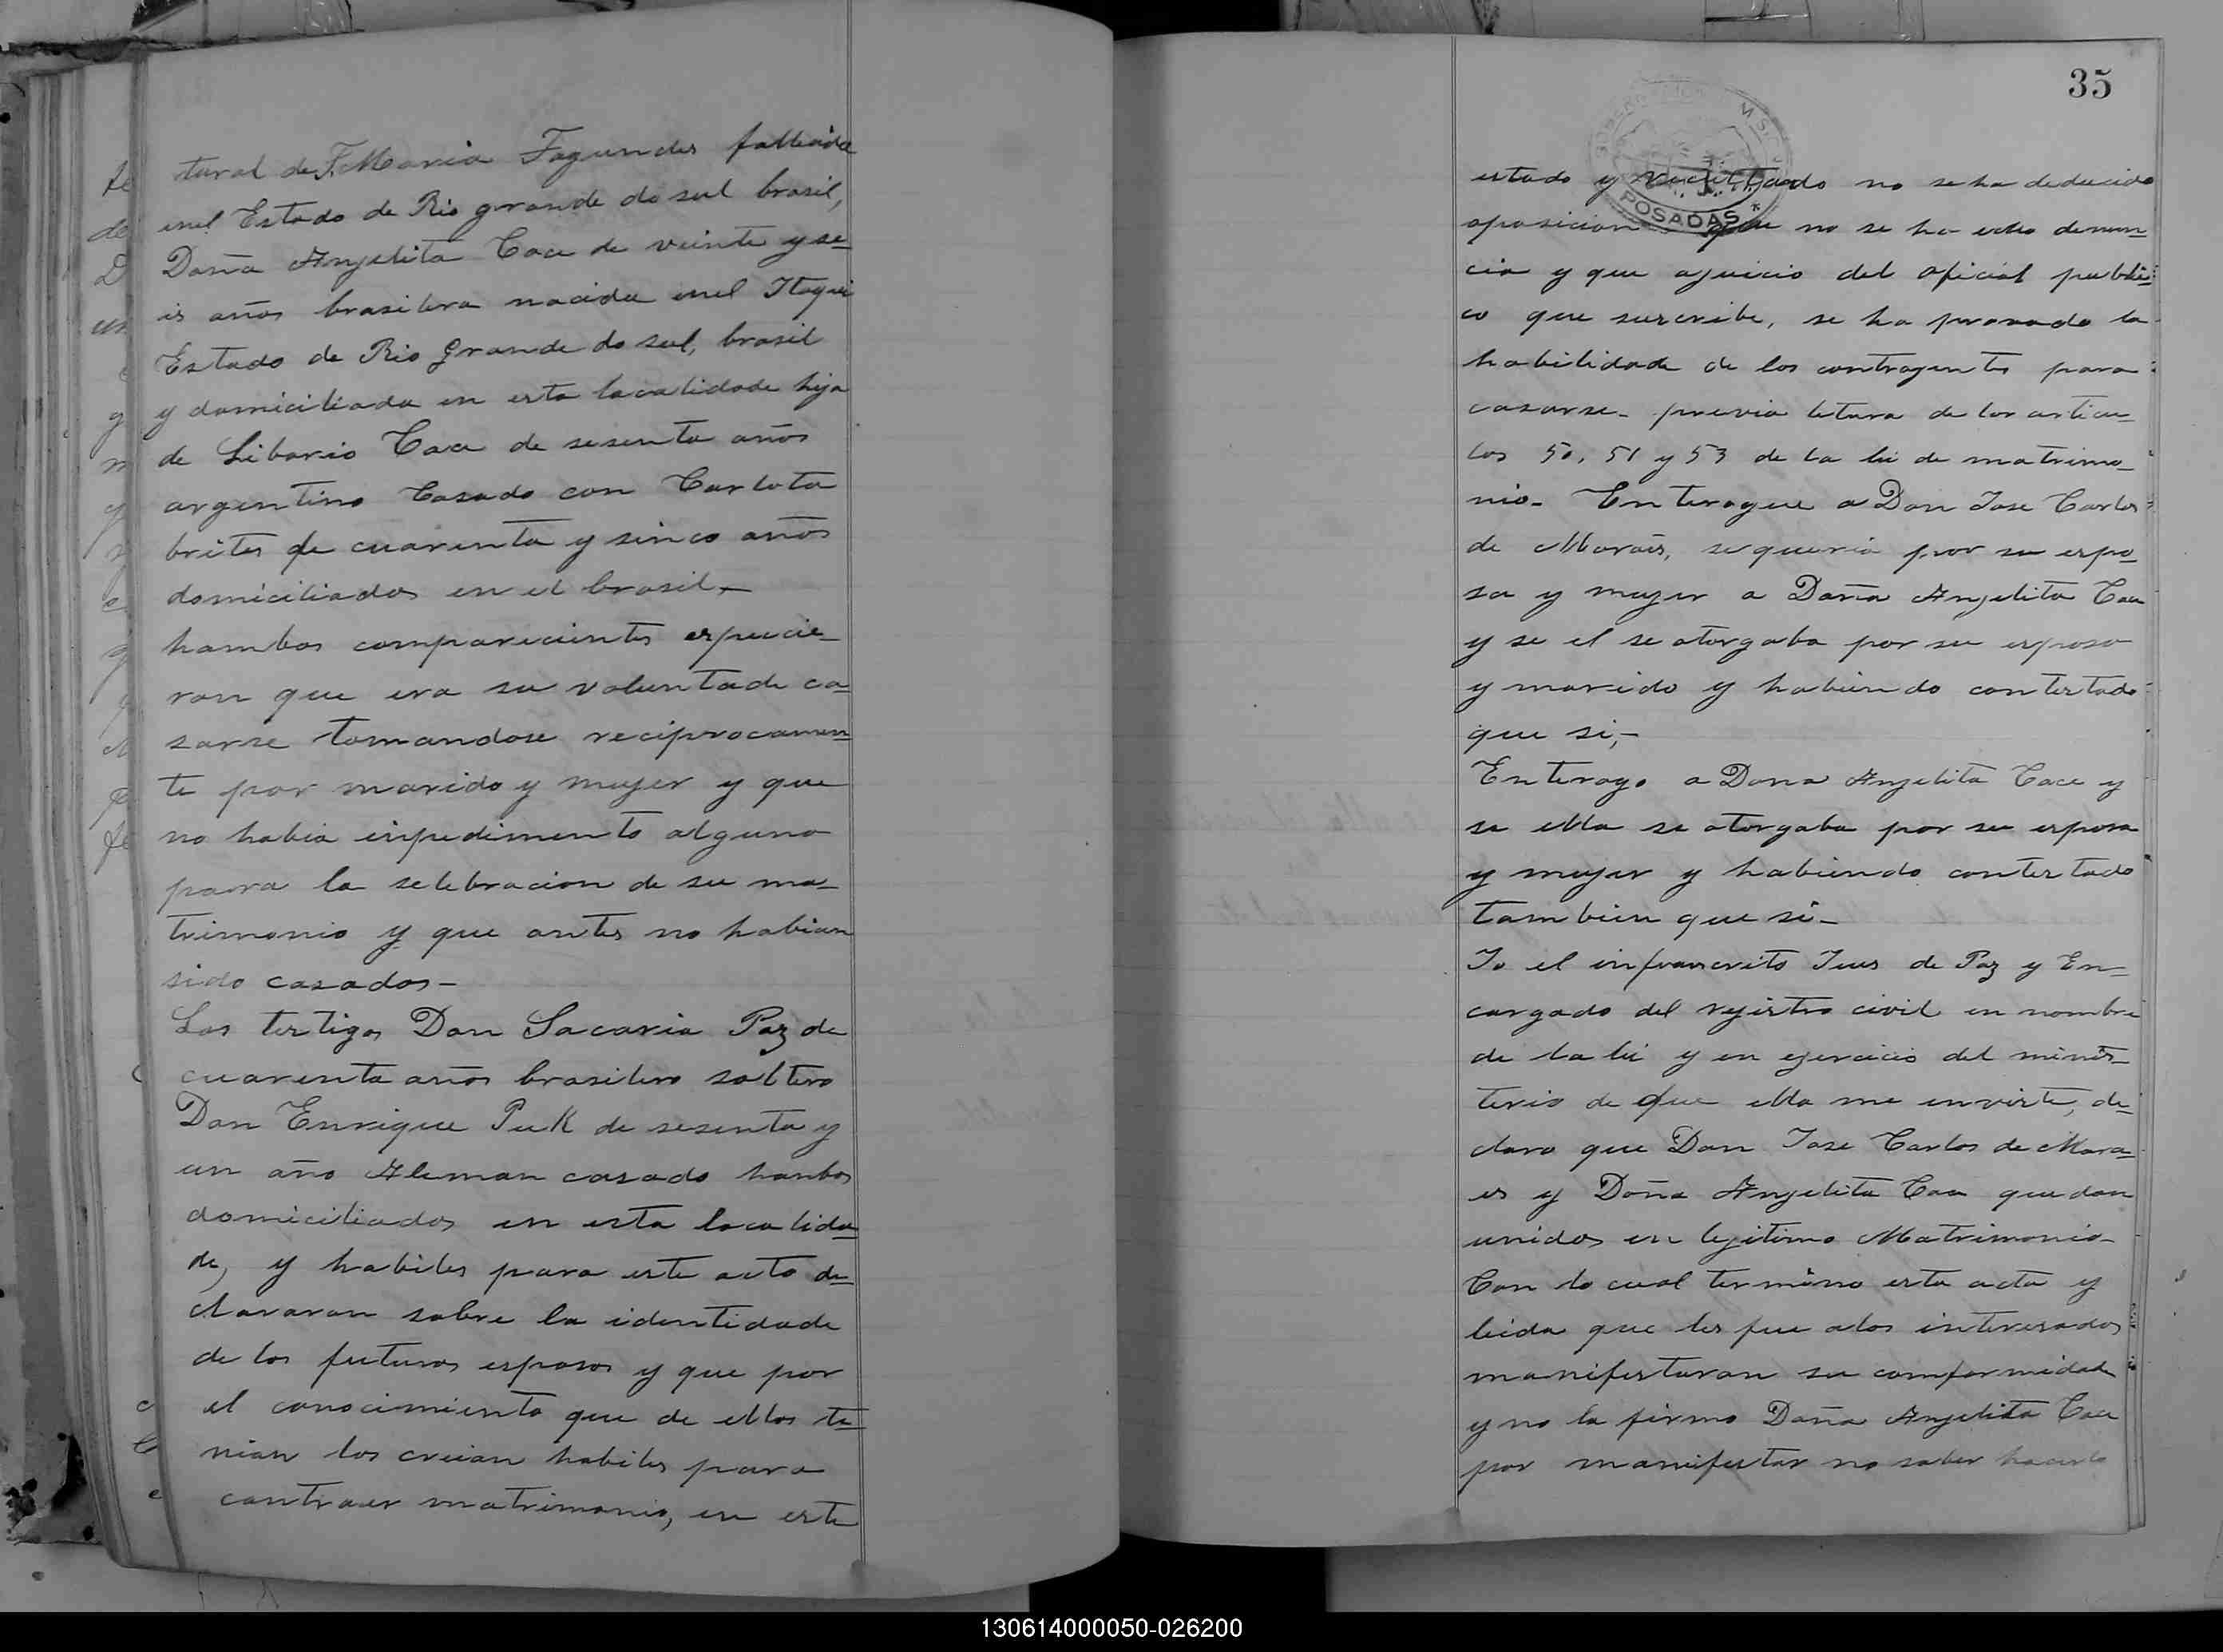 tural de F. Maria Fagundes fallesida
enel Estado de Rio grande do sul brasil,
Doña Anjelita Coce de veinte y se=
is años brasilera nacida enel Itaqui
Estado de Rio Grande do sul, brasil
y domiciliada en esta localidade hija
de Liborio Coce de sesenta años
argentino Casado con Carlota
brites de cuarenta y sinco años
domiciliados en el brasil,—
hambos comparecientes espucie-
ron que era su voluntade ca=
sarse tomandose reciprocamen=
te por marido y mujer y que
no habia inpedimento alguno
paara la selebracion de su ma-
trimonio y que antes no habian
sido casados-
Los tertigos Don Sacaria Paz de
cuarenta años brasilero soltero
Don Enrique Puk de sesenta y
un año Aleman casado hanbos
domiciliados en esta localida=
de, y habiles para este acto de=
clararan sobre la identidade
de los futuros esposos y que por
el conocimiento que de ellos te=
nian los creian habiles para
contraer matrimonio, en este
35
POSADAS
estado y no se ha deducido
oposicion que no se ha echo denun=
cia y que ajuicio del oficial publi=
co que suscribe, se ha provado la
habilidade de los contrayentes para
casarse- previa letura de los articu-
los 50, 51 y 53 de la lei de matrimo-
nio- Enterogue a Don Jose Carlos
de Moraes, se queria por su espo-
sa y mujer a Doña Anjelita Coce
y se el se otorgaba por su esposo
y marido y habiendo contestado
que si,-
Enterogo a Dona Anjelita Coce y
se ella se otorgaba por su esposa
y mujer y habiendo contestado
tambien que si-
Io el infrascrito Jues de Paz y En-
cargado del rejistro civil en nombre
de la lei y en ejercicio del minis-
terio de que ella me enviste, de=
claro que Don Jose Carlos de Mora=
es y Doña Anjelita Coce quedan
unidos en lejitimo Matrimonio-
Con lo cual termino esta acta y
leida que les fue alos interesados
manifestaron su comformidade
y no la firmo Doña Anjelita Coce
por manifestar no saber hacerlo
130614000050-026200